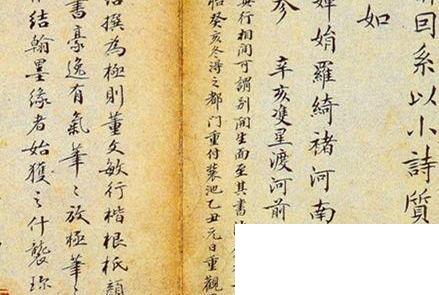 回系以小詩質
如
嬋娟羅綺褚河南
辛亥雙星渡河前
其行相間可謂別開生面至其書
癸亥冬得之都門重付裝池乙丑元日重觀
撰為極則董文敏行楷根柢顏
書豪逸有氣筆〻放極筆〻
結翰墨緣者始獲之什襲珎